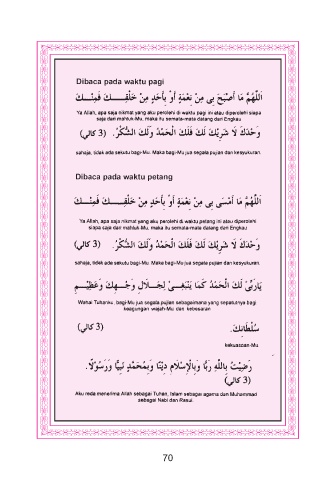 Dibaca pada waktu pagi
اَللَّهُمَّ مَا أَصْبَحَ بِى مِنْ نِعْمَةٍ أَوْ بِأَحَدٍ مِنْ خَلْقِــــكَ فَمِنْــــكَ
Ya Allah, apa saja nikmat yang aku perolehi di waktu pagi ini atau diperolehi siapa
saja dari mahluk-Mu, maka itu semata-mata datang dari Engkau
وَحْدَكَ لَا شَرِيْكَ لَكَ فَلَكَ الْحَمْدُ وَلَكَ الشُّكْرُ. (3 كالي)
sahaja, tidak ada sekutu bagi-Mu. Maka bagi-Mu jua segala pujian dan kesyukuran.
Dibaca pada waktu petang
اَللَّهُمَّ مَا أَمْسَى بِى مِنْ نِعْمَةٍ أَوْ بِأَحَدٍ مِنْ خَلْقِــــكَ فَمِنْــــكَ
Ya Allah, apa saja nikmat yang aku perolehi di waktu petang ini atau diperolehi
siapa saja dari mahluk-Mu, maka itu semata-mata datang dari Engkau
وَحْدَكَ لَا شَرِيْكَ لَكَ فَلَكَ الْحَمْدُ وَلَكَ الشُّكْرُ. (3 كالي)
sahaja, tidak ada sekutu bagi-Mu. Maka bagi-Mu jua segala pujian dan kesyukuran.
يَارَبِّ لَكَ الْحَمْدُ كَمَا يَنْبَغِــى لِجَــلَالِ وَجْــهِكَ وَعَظِيْــمِ
Wahai Tuhanku, bagi-Mu jua segala pujian sebagaimana yang sepatutnya bagi
keagungan wajah-Mu dan kebesaran
سُلْطَانِكَ. (3 كالي)
kekuasaan-Mu
رَضِيْتُ بِاللهِ رَبًّا وَبِالْإِسْلَامِ دِيْنًا وَبِمُحَمَّدٍ نَبِيًّا وَرَسُوْلًا.
(3 كالي)
Aku reda menerima Allah sebagai Tuhan, Islam sebagai agama dan Muhammad
sebagai Nabi dan Rasul.
70